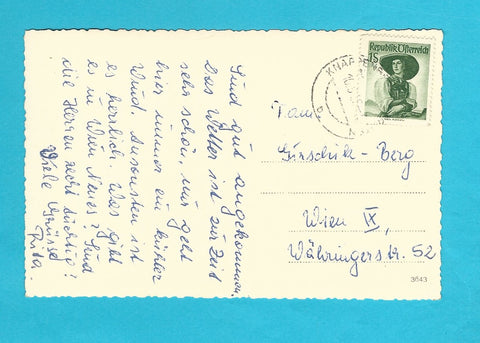 Sind gut angekommen.
Das Wetter ist zur Zeit
sehr schön, nur geht
hier immer ein kühler
Wind. Ansonsten ist
es herrlich. Was gibt
es in Wien Neues? Sind
die Herren recht tüchtig?
Viele Grüsse!
Rita.
Republik Österreich
1S
KNAPPENB
Frau
Girschik-Berg
Wien IX,
Währingerstr. 52
3643